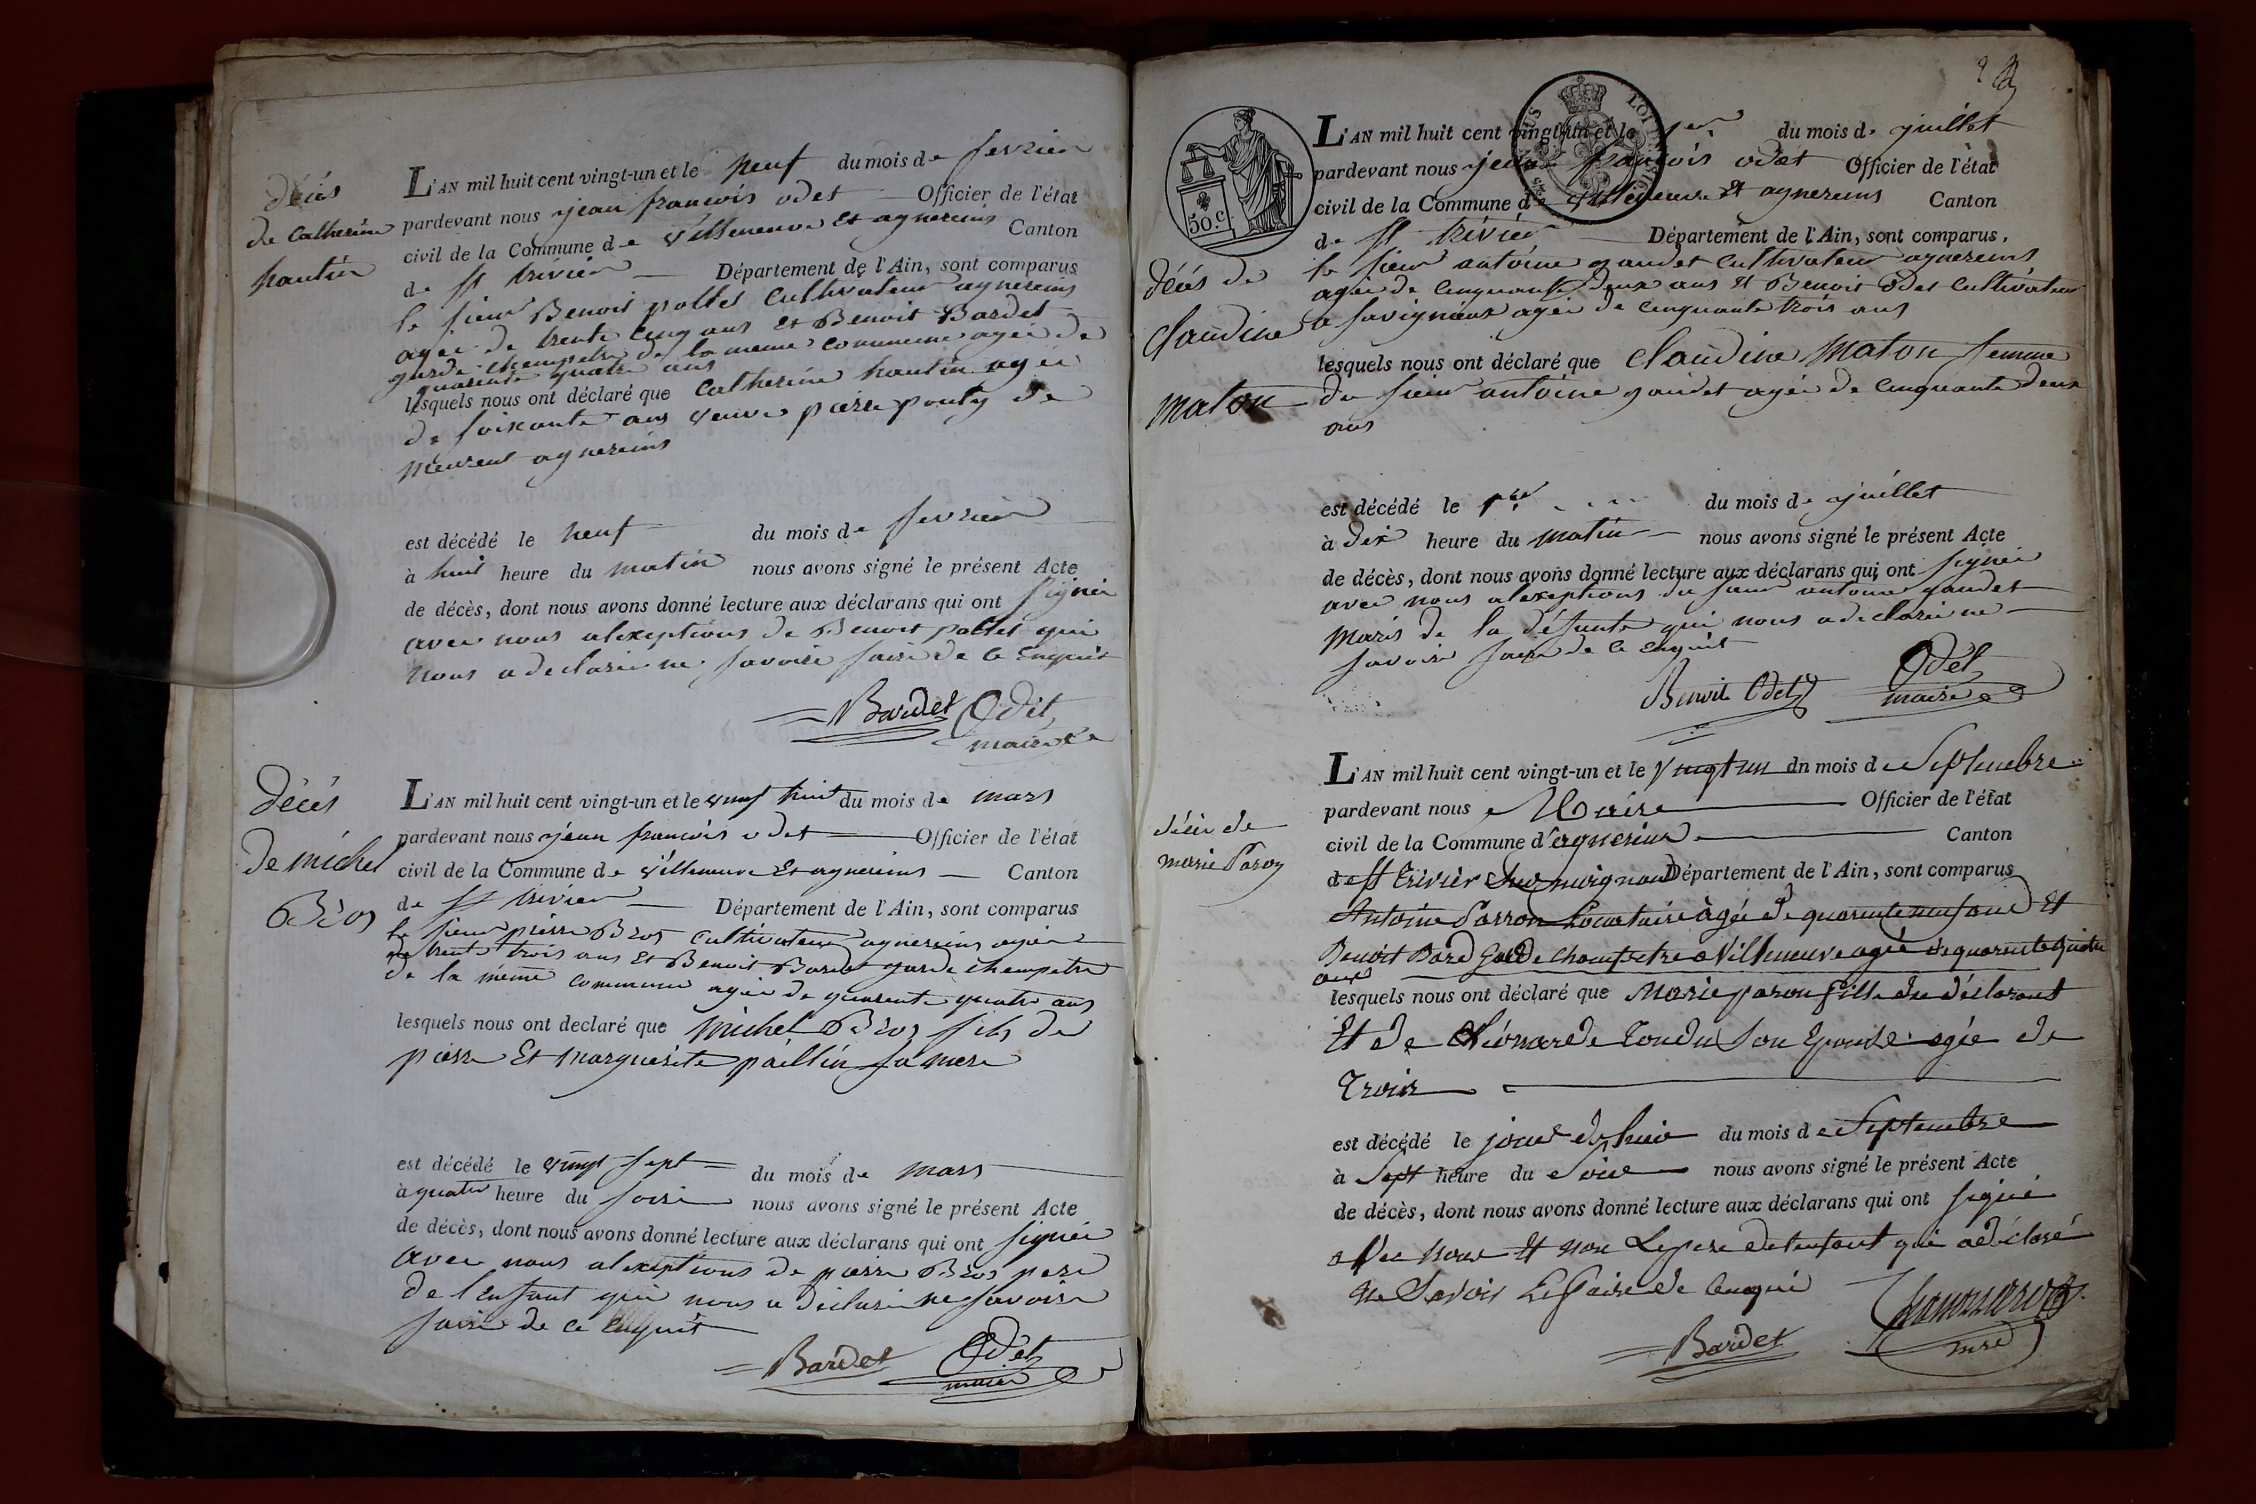 décés
de catherine
hautin
L'AN mil huit cent vingt-un et le neuf du mois de fevrier
pardevant nous jean francois odet Officier de l'état
civil de la Commune de villeneuve et agnereins Canton
de st trivier Département de l'Ain, sont comparus
le sieur Benoit pollet cultivateur agnereins
agée de trente cinq ans et Benoit Bardet
garde champetre de la meme commune agée de
quarente quatre ans
lesquels nous ont déclaré que catherine hautin agée
de soixante ans veuve pierre pouly de
meurent agnereins
est décédé le neuf du mois de fevrier
à huit heure du matin nous avons signé le présent Acte
de décès, dont nous avons donné lecture aux déclarans qui ont signée
avec nous alexeptions de Benoit pollet qui
nous a declarée ne savoire faire de ce enquit
Bardet Odet
maire
Décés
de michel
Bros
L'AN mil huit cent vingt-un et le vingt huit du mois de mars
pardevant nous jean francois odet Officier de l'état
civil de la Commune de villeneuve et agnereins Canton
de st trivier Département de l'Ain, sont comparus
le sieur pierre Bros cultivateur agnereins agée
de trente trois ans et Benoit Bardet garde champetre
de la méme commune agée de quarente quatre ans
lesquels nous ont declaré que michel Bros fils de
pierre et marguerite paillin sa mere
est décédé le vingt sept du mois de mars
à quatre heure du soire nous avons signé le présent Acte
de décès, dont nous avons donné lecture aux déclarans qui ont signée
avec nous alexeptions de pierre Bros pere
de l'enfant qui nous a déclaré ne savoire
faire de ce enquit
Bardet Odet
maire
50.c
L'AN mil huit cent vingt-un et le 1er du mois de juillet
pardevant nous jean francois odet Officier de l'état
civil de la Commune de villeneuve et agnereins Canton
de st trivier Département de l'Ain, sont comparus,
le sieur antoine gaudet cultivateur agnereins
agée de cinquante deux ans et Benoit odet cultivateur
a savigneux agée de cinquante trois ans
décés de
claudine
maton
lesquels nous ont déclaré que claudine maton femme
du sieur antoine gaudet agée de cinquante deux
ans
est décédé le 1er du mois de juillet
à dix heure du matin nous avons signé le présent Acte
de décès, dont nous avons donné lecture aux déclarans qui ont signée
avec nous alexeptions du sieur antoine gaudet
maris de la défunte qui nous a declarée ne
savoire faire de ce enquit
Benoit Odet Odet
maire
décés de
marie Paron
L'AN mil huit cent vingt-un et le vingt un du mois de Septembre
pardevant nous Maire Officier de l'état
civil de la Commune d'agnereins Canton
de st trivier sur moignand Département de l'Ain, sont comparus
Antoine Parron Locataire agée de quarente neuf ans et
Benoit Bard Garde champetre a villeneuve agée de quarente quatre
ans
lesquels nous ont déclaré que Marie paron fille du déclarant
et de Léonarde Tondu son Epouse agée de
trois
est décédé le jour d'hui du mois de Septembre
à Sept heure du Soir nous avons signé le présent Acte
de décès, dont nous avons donné lecture aux déclarans qui ont signé
avec nous et non Le pere de lenfant qui a déclaré
ne Savoir Le faire de cenquis
Bardet
mre